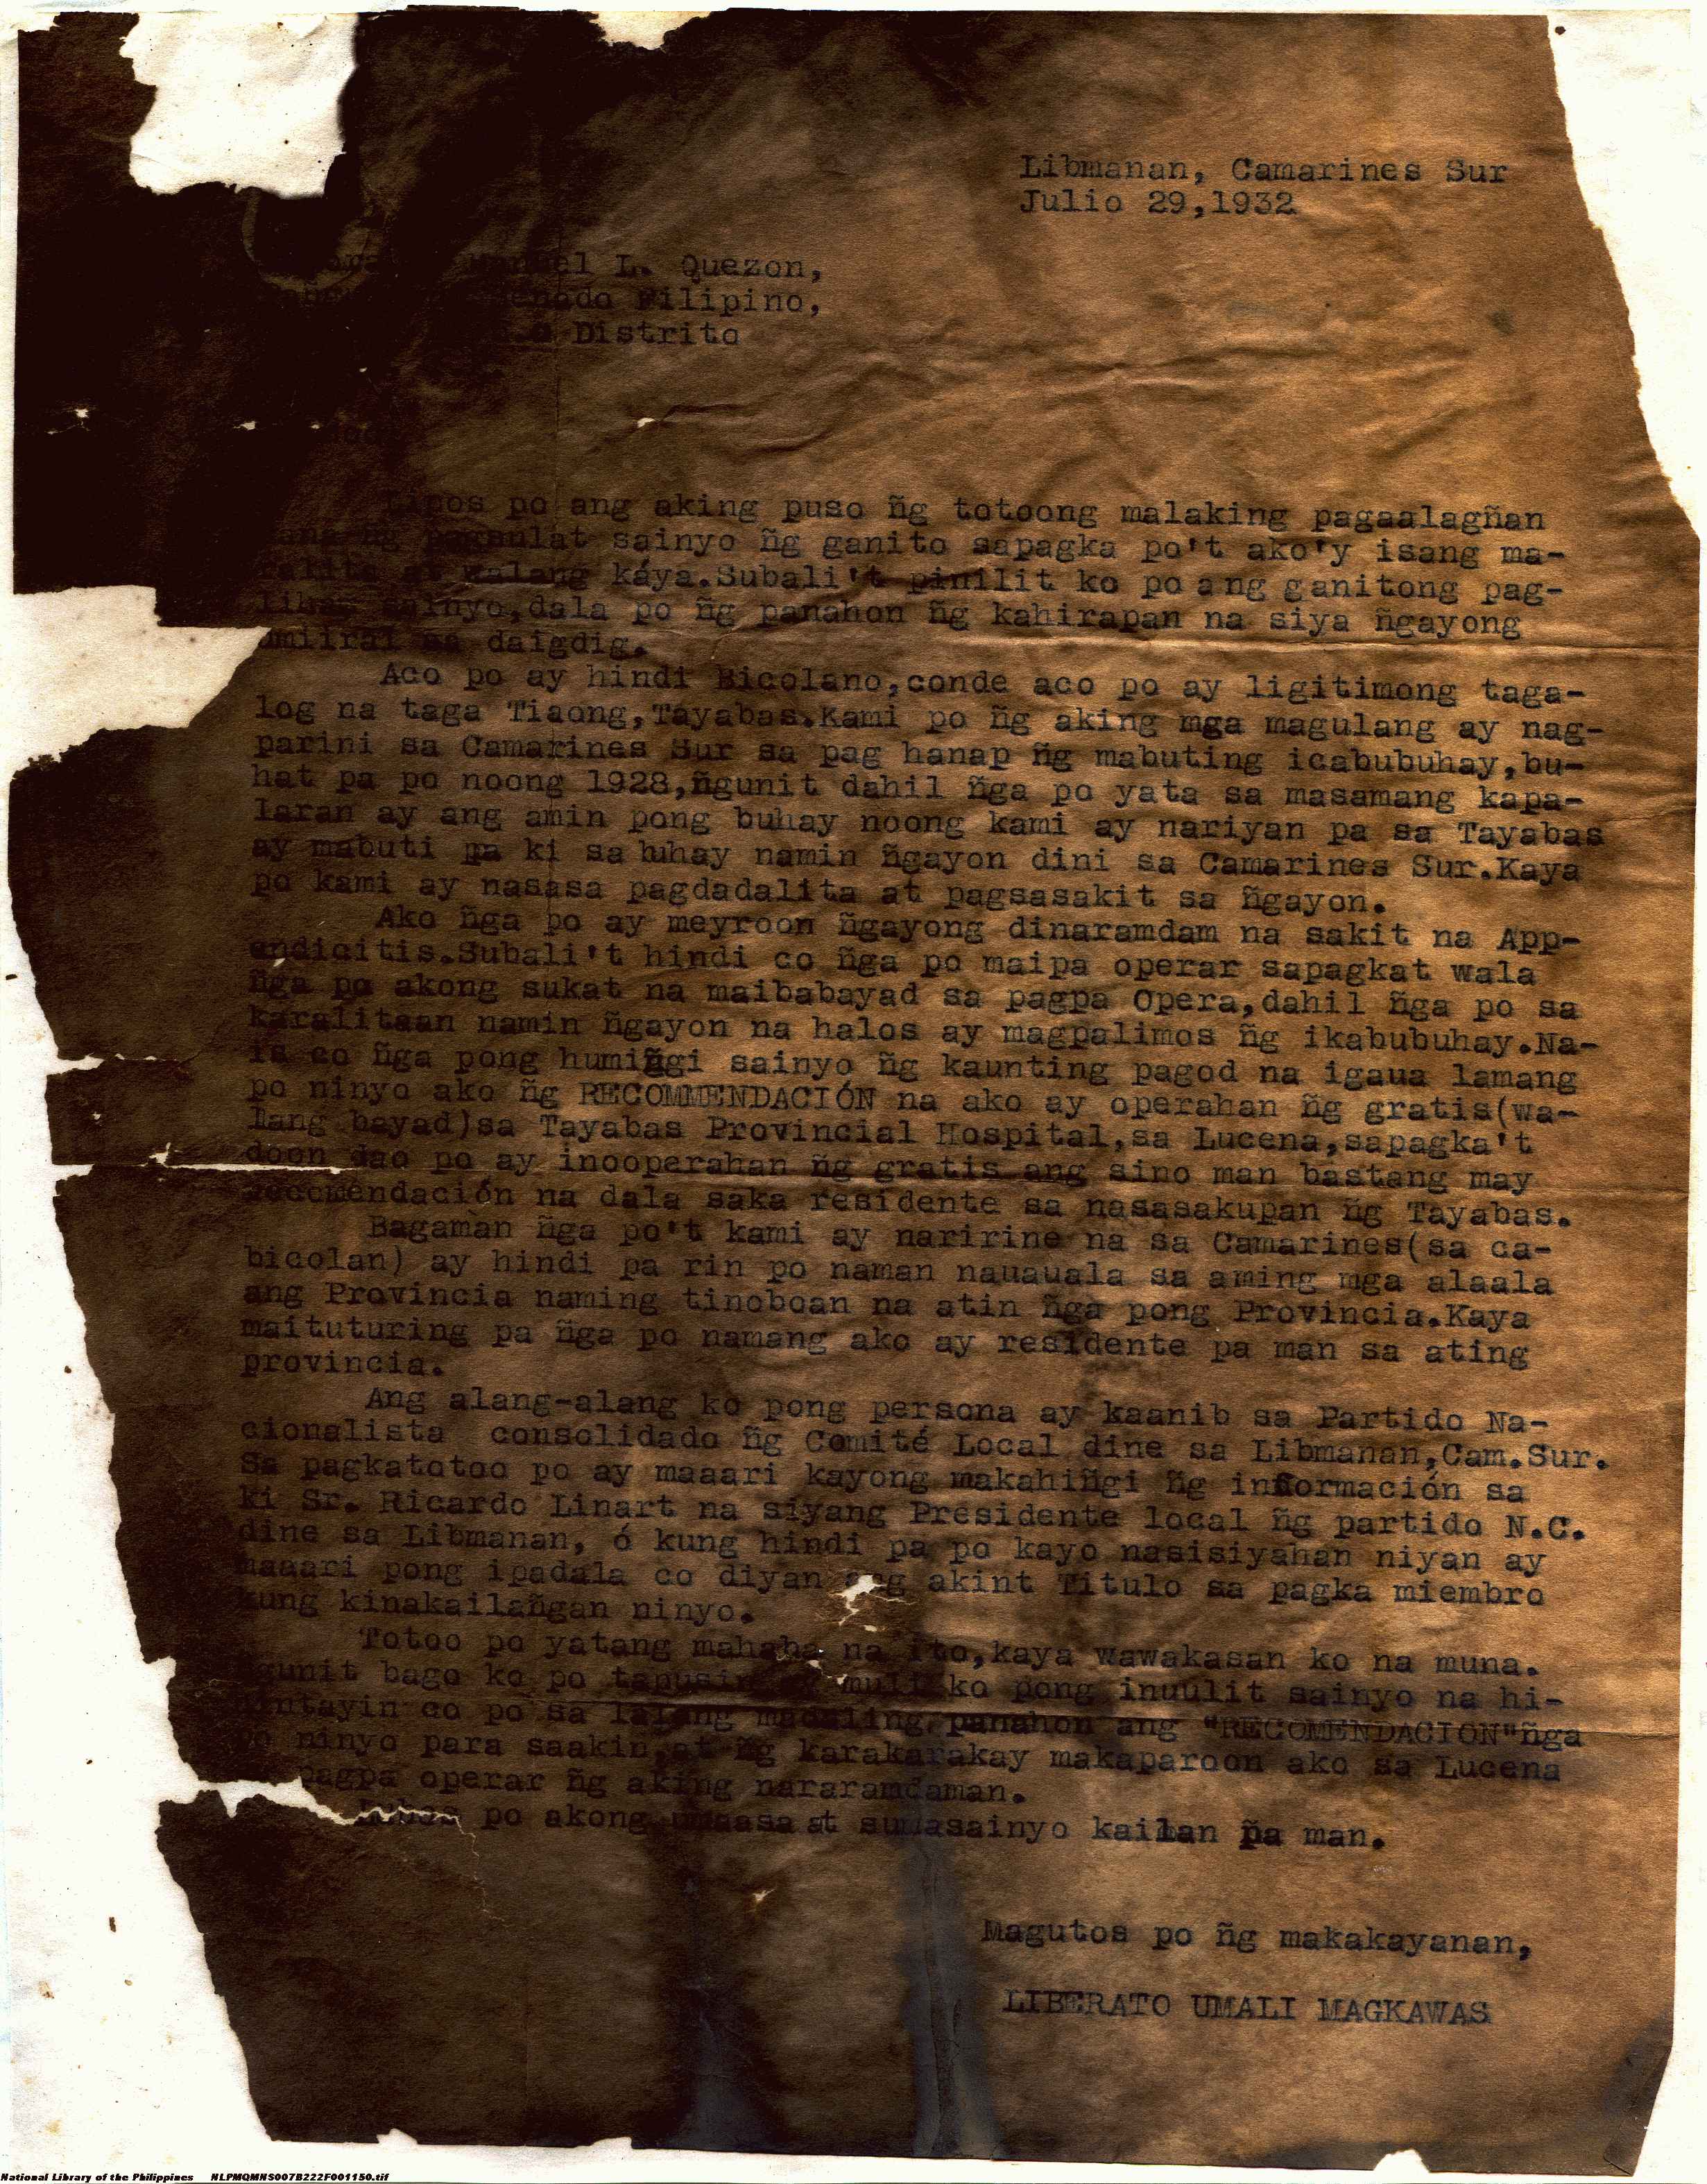 Libmanan, Camarines Sur
Julio 29,1932
Manuel L. Quezon,
Senado Filipino,
Distrito
po ang aking puso ñg totoong malaking pagaalagñan
ñg pagsulat sainyo ñg ganito sapagka po't ako'y isang ma-
walang káya.Subali't pinilit ko po ang ganitong pag-
sainyo,dala po ñg panahon ñg kahirapan na siya ñgayong
umiiral sa daigdig.
Aco po ay hindi Bicolano,conde aco po ay ligitimong taga-
log na taga Tiaong,Tayabas.Kami po ñg aking mga magulang ay nag-
parini sa Camarines Sur sa pag hanap ñg mabuting icabubuhay,bu-
hat pa po noong 1928,ñgunit dahil ñga po yata sa masamang kapa-
laran ay ang amin pong buhay noong kami ay nariyan pa sa Tayabas
ay mabuti pa ki sa buhay namin ñgayon dini sa Camarines Sur.Kaya
po kami ay nasasa pagdadalita at pagsasakit sa ñgayon.
Ako ñga po ay meyroon ñgayong dinaramdam na sakit na App-
endicitis.Subali't hindi co ñga po maipa operar sapagkat wala
ñga po akong sukat na maibabayad sa pagpa Opera,dahil ñga po sa
karalitaan namin ñgayon na halos ay magpalimos ñg ikabubuhay.Na-
is co ñga pong humiñgi sainyo ñg kaunting pagod na igaua lamang
po ninyo ako ñg RECOMMENDACIÓN na ako ay operahan ñg gratis(wa-
lang bayad)sa Tayabas Provincial Hospital,sa Lucena,sapagka't
doon dao po ay inooperahan ñg gratis ang sino man bastang may
recomendación na dala saka residente sa nasasakupan ñg Tayabas.
Bagaman ñga po't kami ay naririne na sa Camarines(sa ca-
bicolan) ay hindi pa rin po naman nauauala sa aming mga alaala
ang Provincia naming tinoboan na atin ñga pong Provincia.Kaya
maituturing pa ñga po namang ako ay residente pa man sa ating
provincia.
Ang alang-alang ko pong persona ay kaanib sa Partido Na-
cionalista consolidado ñg Comité Local dine sa Libmanan,Cam.Sur.
Sa pagkatotoo po ay maaari kayong makahiñgi ñg información sa
ki Sr. Ricardo Linart na siyang Presidente local ñg partido N.C.
dine sa Libmanan, ó kung hindi pa po kayo nasisiyahan niyan ay
maaari pong ipadala co diyan ang akint Titulo sa pagka miembro
kung kinakailañgan ninyo.
Totoo po yatang mahaba na ito,kaya wawakasan ko na muna.
ñgunit bago ko po tapusin ay muli ko pong inuulit sainyo na hi-
hintayin co po sa lalong madaling panahon ang "RECOMENDACION"ñga
po ninyo para saakin,at ñg karakarakay makaparoon ako sa Lucena
pagpa operar ñg aking nararamdaman.
po akong umaasa at sumasainyo kailan pa man.
Magutos po ñg makakayanan,
LIBERATO UMALI MAGKAWAS
National Library of the Philippines NLPMQMNS007B222F001150.tif